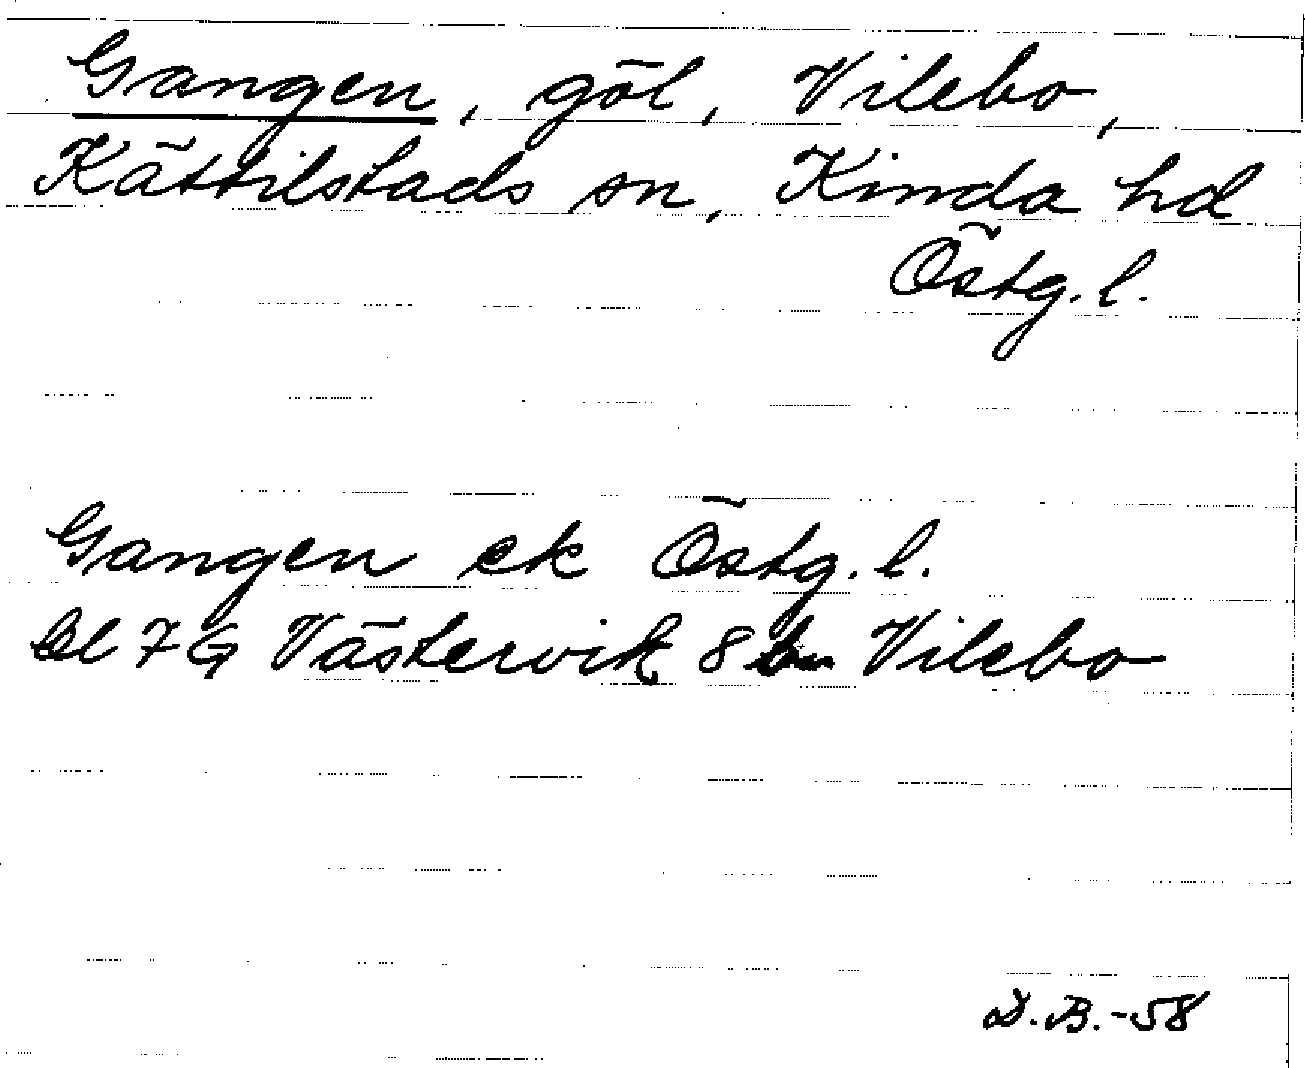 Gangen, göl, Vilebo,
Kättilstads sn, Kinda hd
Östg. l.
Gangen ek Östg. l.
bl 7 G Västervik 8 Vilebo
D.B.-58